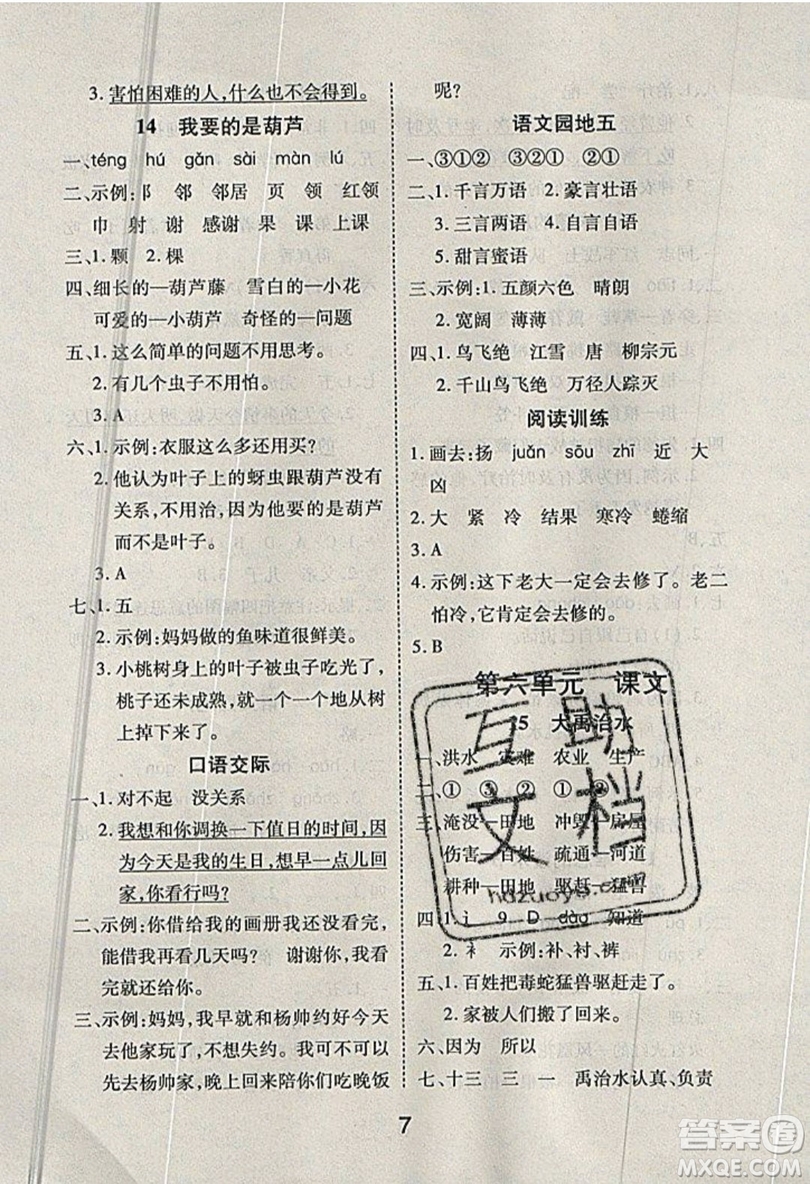 3. 害怕困难的人,什么也不会得到。
14 我要的是葫芦
一、téng hú gǎn sài màn lú
二、示例:阝 邻 邻居 页 领 红领
巾 射 谢 感谢 果 课 上课
三、1. 颗 2. 棵
四、细长的—葫芦藤 雪白的—小花
可爱的—小葫芦 奇怪的—问题
五、1. 这么简单的问题不用思考。
2. 有几个虫子不用怕。
3. A
六、1. 示例:衣服这么多还用买?
2. 他认为叶子上的蚜虫跟葫芦没有
关系,不用治,因为他要的是葫芦
而不是叶子。
3. A
七、1. 五
2. 示例:妈妈做的鱼味道很鲜美。
3. 小桃树身上的叶子被虫子吃光了,
桃子还未成熟,就一个一个地从树
上掉下来了。
口语交际
一、1. 对不起 没关系
2. 我想和你调换一下值日的时间,因
为今天是我的生日,想早一点儿回
家,你看行吗?
二、示例:你借给我的画册我还没看完,
能借我再看几天吗? 谢谢你,我看
完就还给你。
三、示例:妈妈,我早就和杨帅约好今天
去他家玩了,不想失约。我先去他家,
先去杨帅家,晚上回来陪你们吃晚饭
呢?
语文园地五
一、③①② ③②① ②①
二、1. 千言万语 2. 豪言壮语
3. 三言两语 4. 自言自语
5. 甜言蜜语
三、示例:1. 五颜六色 晴朗
2. 宽阔 薄薄
四、1. 鸟飞绝 江雪 唐 柳宗元
2. 千山鸟飞绝 万径人踪灭
阅读训练
1. 画去:扬 juǎn sōu zhī 近 大
凶
2. 大 紧 冷 结果 寒冷 蜷缩
3. A
4. 示例:这下老大一定会去修了。老二
怕冷,它肯定会去修的。
5. B
第六单元 课文
15 大禹治水
一、洪水 灾难 农业 生产
二、① ③ ② ①
三、淹没—田地 冲毁—房屋
伤害—百姓 疏通—河道
耕种—田地 驱赶—猛兽
四、1. j 9 D dào 知道
2. 衤 示例:补、衬、裤
五、1. 百姓把毒蛇猛兽驱赶走了。
2. 家被人们搬了回来。
六、因为 所以
七、十三 三 一 禹治水认真、负责
7
互助文档
hdzuoye.com
答案圈
MXQE.COM